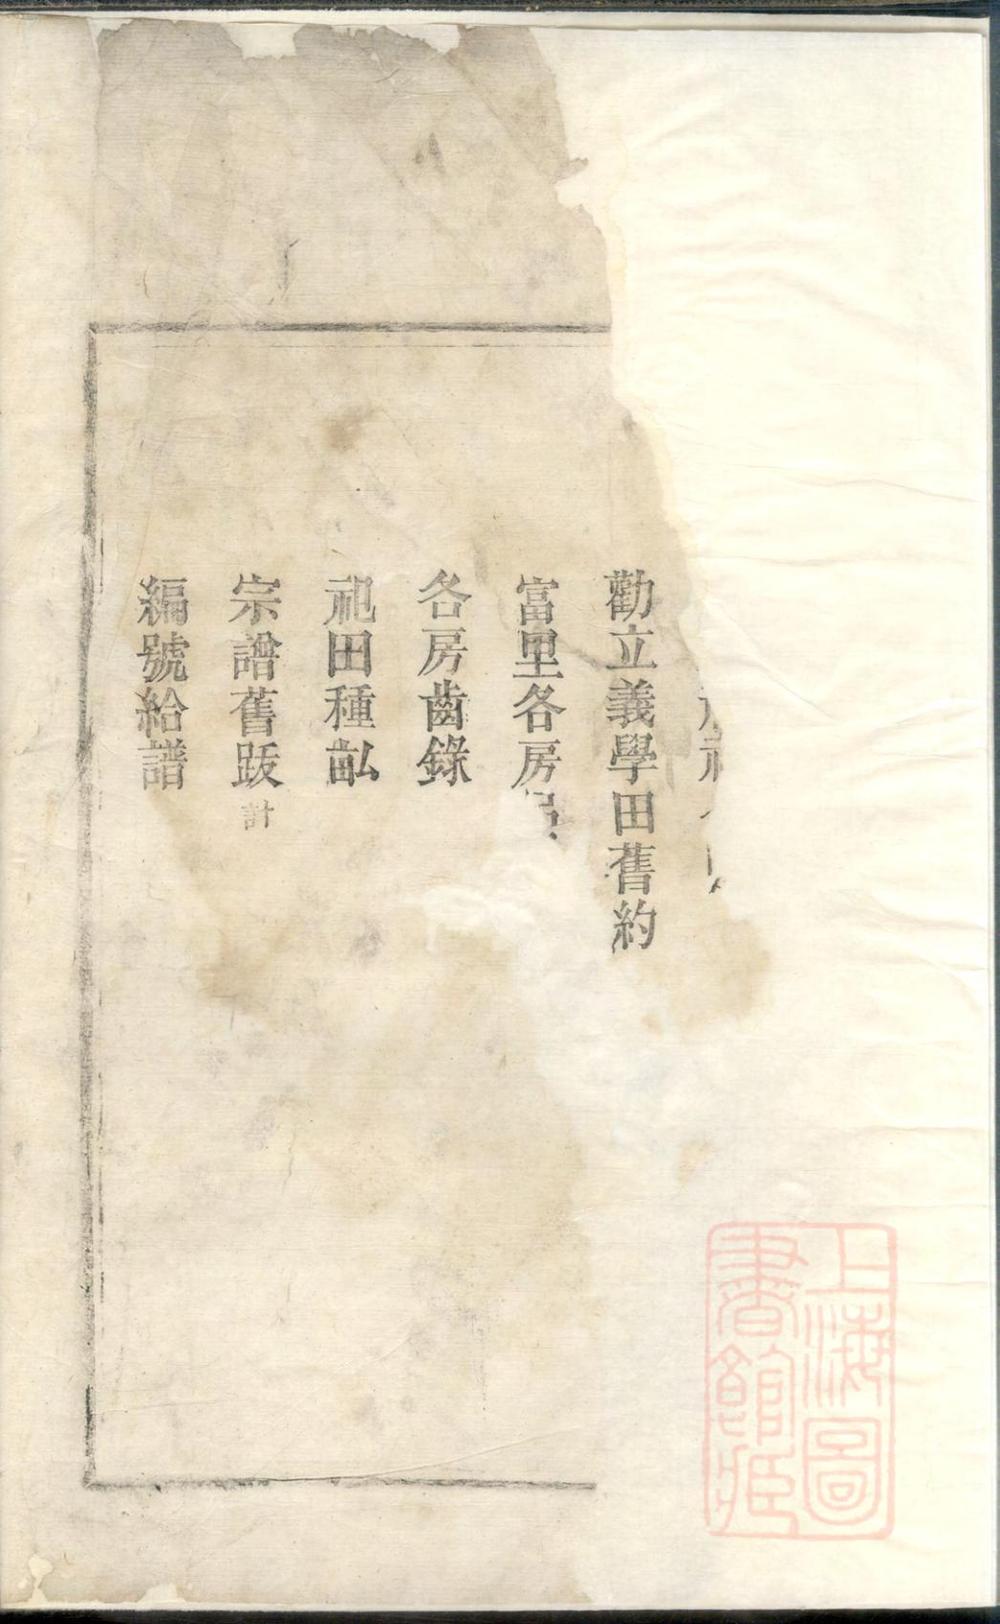 勸立義學田舊約
富里各房
各房齒錄
祀田種畝
宗譜舊跋計
編號給譜
上海圖書館藏